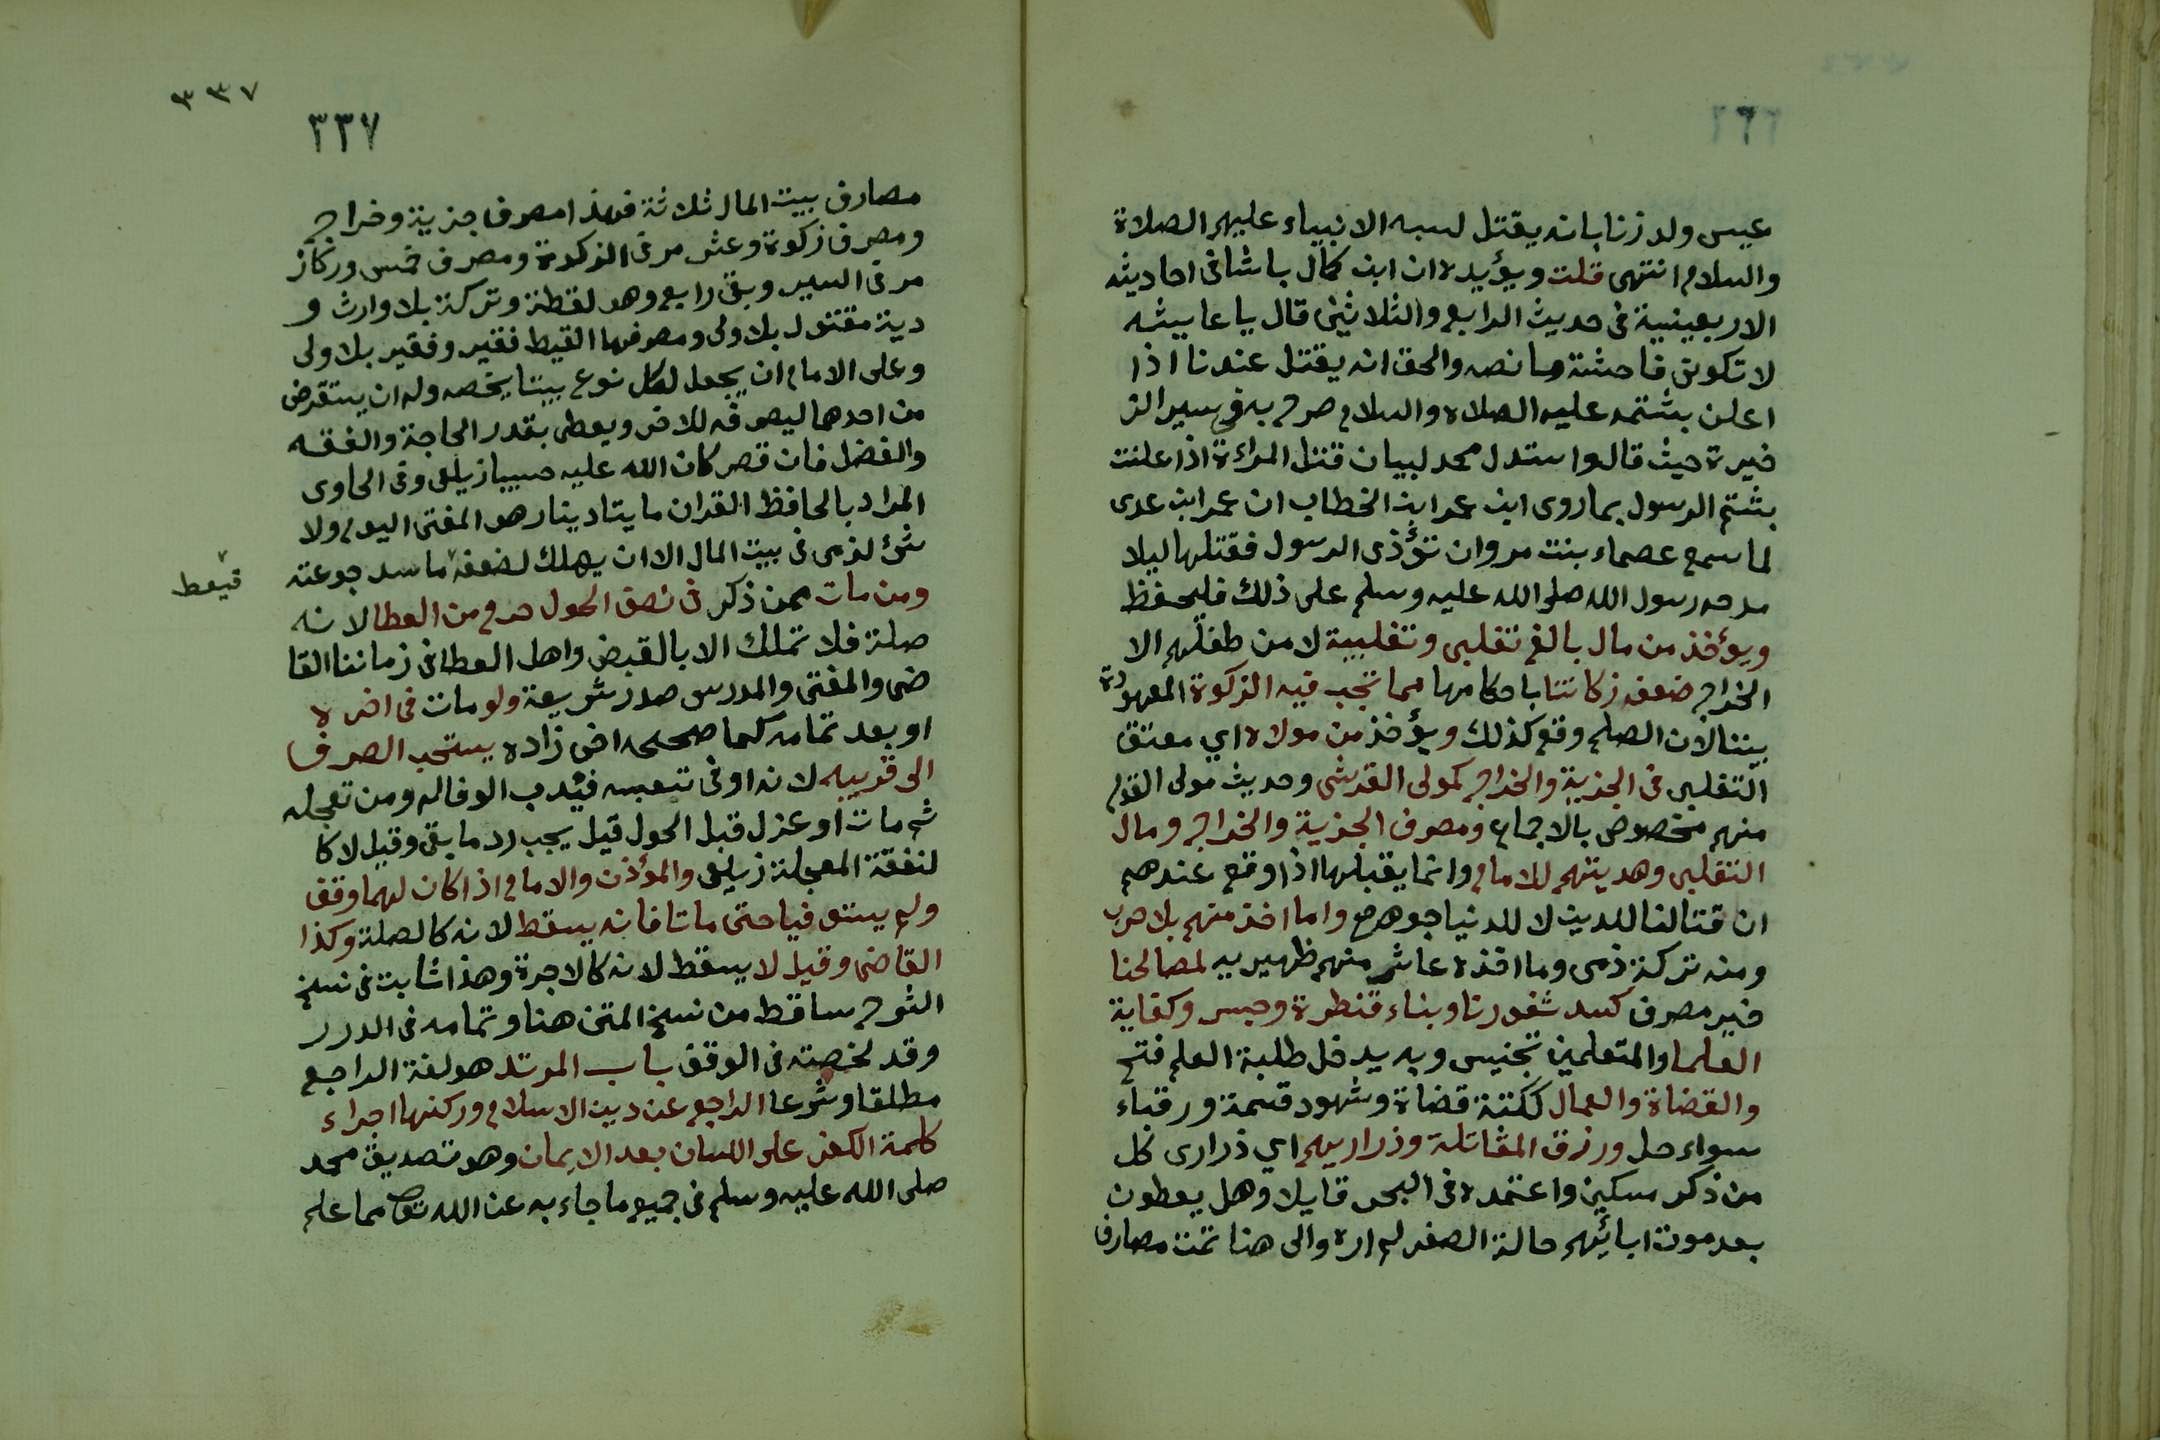 عيسى ولد زنا بانه يقتل لسبه الانبياء عليهم الصلاة
والسلام انتهى قلت ويؤيده ان ابن كمال باشا فى احاديثه
الاربعينية فى حديث الرابع والثلاثين قال يا عايشه
لا تكونى فاحشة ما نصه والحق انه يقتل عندنا اذا
اعلن بشتمه عليه الصلاه والسلام صرح به فى سير الذ
خيرة حيث قال واستدل محمد لبيان قتل المراءة اذا علنت
بشتم الرسول بما روى ابن عمر ابن الخطاب ان عمر ابن عدى
لما سمع عصماء بنت مروان تؤذى الرسول فقتلها ليلا
مدحه رسول الله صلى الله عليه وسلم على ذلك فليحفظ
ويؤخذ من مال بالغ تغلبى وتغلبية لا من طفلهم الا
الخراج ضعف زكاتنا باحكامها مما تجب فيه الزكوة المعهودة
بيننا لان الصلح وقع كذلك ويؤخذ من مولاه اي معتق
التغلبى فى الجزية والخراج كمولى القرشى وحديث مولى القوم
منهم مخصوص بالاجماع ومصرف الجزية والخراج ومال
التغلبى وهديتهم للامام وانما يقبلها اذا وقع عندهم
ان قتالنا للدين لا للدنيا جوهرة واما اخذ منهم بلا حرب
ومنه تركة ذمى وما اخذه عاشر منهم ظهيريه لمصالحنا
خبر مصرف كسد ثغورنا وبناء قنطرة وجسر وكفاية
العلما والمتعلمين تجنيس وبه يدخل طلبة العلم فتح
والقضاة والعمال ككتبة قضاة وشهود قسمة ورقباء
سواحل ورزق المقاتلة وذراريهم اي ذرارى كل
من ذكر مسكين واعتمده فى البحر قايلا وهل يعطون
بعد موت ابائهم حالة الصغر لم اره والى هنا تمت مصارف
٣٣٧
٣٣٧
مصارف بيت المال ثلاثة فهذا مصرف جزية وخراج
ومصرف زكوة وعشر مر فى الزكوة ومصرف خمس وركاز
مر فى السير وبقى رابع وهو لقطة وتركة بلا وارث و
دية مقتول بلا ولى ومصرفها القيط فقير وفقير بلا ولى
وعلى الامام ان يجعل لكل نوع بيتا يخصه وله ان يستقرض
من احدهما ليصرفه للاخر ويعطى بقدر الحاجة والفقه
والفضل فان قصر كان الله عليه حسيبا زيلعى وفى الحاوى
المراد بالحافظ القران مايتا دينار هو المفتى اليوم ولا
شئ لذمى فى بيت المال الا ان يهلك لضعفه ما سد جوعته
فيعطى
ومن مات ممن ذكر فى نصف الحول حرم من العطا لانه
صلة فلا تملك الا بالقبض واهل العطا فى زماننا القا
ضى والمفتى والمدرس صدر شريعة ولو مات فى اخره
او بعد تمامه كما صححه اخى زاده يستحب الصرف
الى قريبه لانه اوفى تعبه فيندب الوفا له ومن تعجله
ثم مات او عزل قبل الحول قيل يجب رد ما بقى وقيل لا كا
لنفقة المعجلة زيلعى والمؤذن والامام اذا كان لهما وقف
ولم يستوفيا حتى ماتا فانه يسقط لانه كالصلة وكذا
القاضى وقيل لا يسقط لانه كالاجرة وهذا ثابت فى نسخ
الشرح ساقط من نسخ المتن هنا وتمامه فى الدرر
وقد لخصته فى الوقف باب المرتد هو لغة الراجع
مطلقا وشرعا الراجع عن دين الاسلام وركنها اجراء
كلمة الكفر على اللسان بعد الايمان وهو تصديق محمد
صلى الله عليه وسلم فى جميع ما جاء به عن الله تعا مما علم